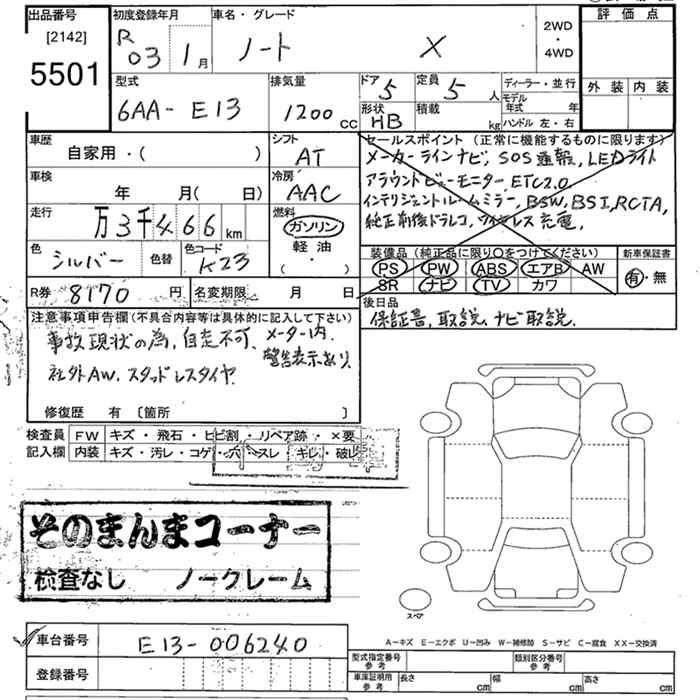 出品番号
[2142]
5501
初度登録年月
R 03 1月
車名・グレード
ノート X
2WD
・
4WD
評価点
外装 内装
型式
6AA-E13
排気量
1200 cc
ドア 5
定員 5 人
形状 HB
積載 kg
ディーラー・並行
モデル年式 年
ハンドル 左・右
車歴
自家用・( )
シフト
AT
車検
年 月( 日)
冷房
AAC
走行
万3千466km
燃料
ガソリン
軽油・
( )
色
シルバー
色替
色コード
K23
セールスポイント(正常に機能するものに限ります)
メーカーラインナビ, SOS通報, LEDライト
アラウンドビューモニター, ETC2.0,
インテリジェントルームミラー, BSW, BSI, RCTA,
純正前後ドラレコ, ワイヤレス充電,
装備品(純正品に限り○をつけてください)
PS PW ABS エアB AW
SR ナビ TV カワ
新車保証書
有・無
R券 8170 円
名変期限 月 日
後日品
保証書, 取説, ナビ取説.
注意事項申告欄(不具合内容等は具体的に記入して下さい)
事故現状の為, 自走不可, メーター内
警告表示あり,
社外AW. スタッドレスタイヤ.
修復歴 有 〔箇所 〕
検査員 FW キズ・飛石・ヒビ割・リペア跡・×要
記入欄 内装 キズ・汚レ・コゲ・穴・スレ・キレ・破レ
そのまんまコーナー
検査なし ノークレーム
スペア
A-キズ E-エクボ U-凹み W-補修跡 S-サビ C-腐食 XX-交換済
車台番号
E13-006240
登録番号
型式指定番号 参考
類別区分番号 参考
車庫証明用 参考
長さ cm
幅 cm
高さ cm